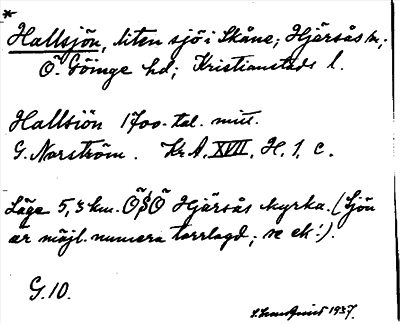 *
Hallsjön, liten sjö i Skåne; Hjärsås sn;
Ö. Göinge hd; Kristianstads l.
Hallsiön 1700-tal. mitt.
G. Norström. Kr.A. XVII. H. 1, c.
Läge 5,3 km. ÖSÖ Hjärsås kyrka. (Sjön
är möjl. numera torrlagd; se ek!).
G. 10.
1937.